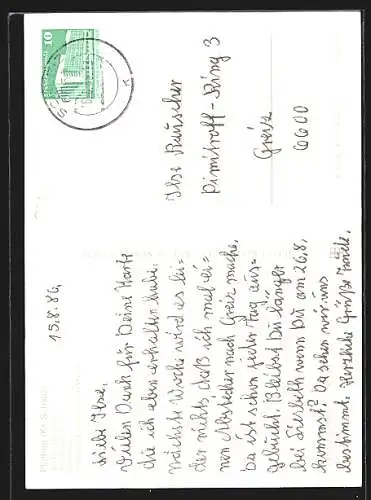 15.8.86
Liebe Ilse,
Vielen Dank für Deine Karte
die ich eben erhalten habe.
Nächste Woche wird es lei-
der nichts, daß ich mal ei-
nen Abstecher nach Greiz mache,
da ist schon jeder Tag aus-
gebucht. Bleibst Du länger
bei Liesbeth wenn Du am 26.8.
kommst? Da sehen wir uns
bestimmt. Herzliche Grüße
Ilse Rauscher
Dimitroff-Ring 3
Greiz
6600
10